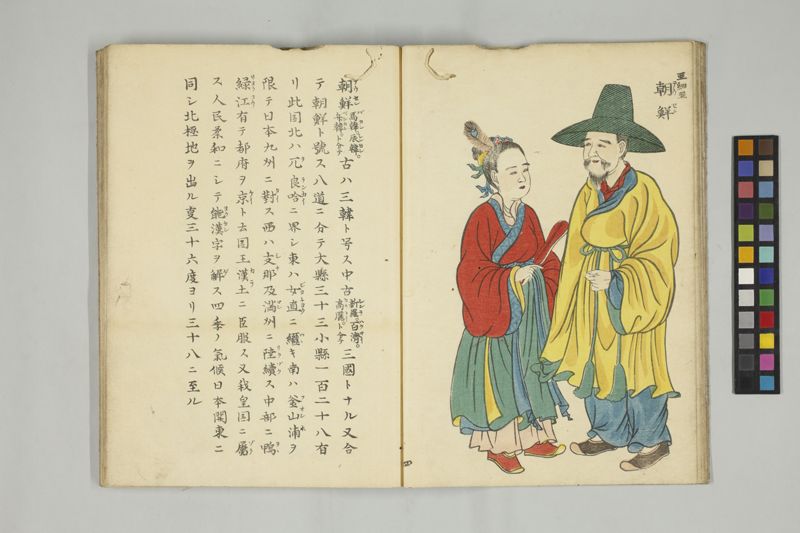 亞細亞
朝鮮
朝鮮 馬韓辰韓。弁韓ト分テ 古ハ三韓ト号ス中古 新羅百濟。高麗ト分テ 三國トナル又合
テ朝鮮ト號ス八道ニ分テ大縣三十三小縣一百二十八有
リ此国北ハ兀良哈ニ界シ東ハ女直ニ繼キ南ハ釜山浦ヲ
限テ日本九州ニ對ス西ハ支那及満州ニ陸續ス中部ニ鴨
緑江有テ都府ヲ京ト云国王漢土ニ臣服ス又我皇国ニ屬
ス人民柔和ニシテ能漢字ヲ解ス四季ノ氣候日本関東ニ
同シ北極地ヲ出ル叓三十六度ヨリ三十八ニ至ル